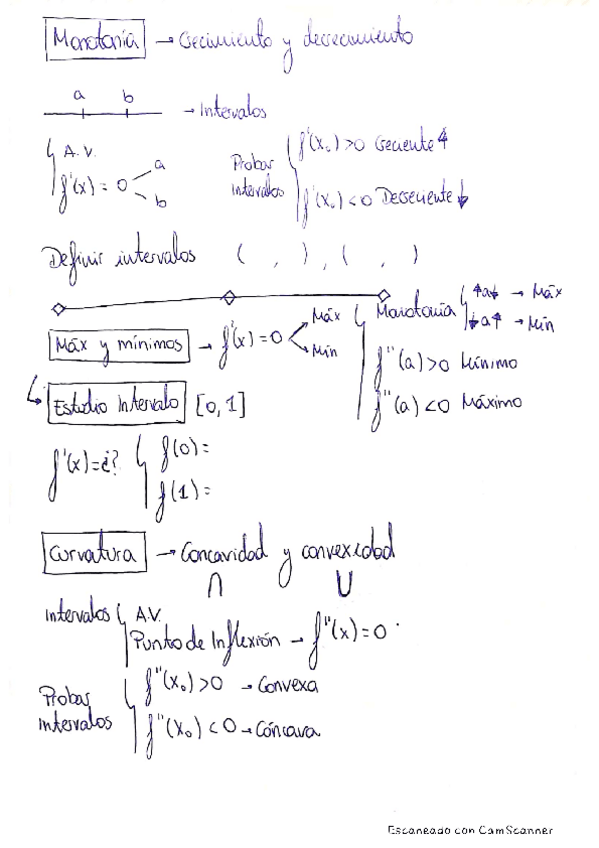 Monotonía → Crecimiento y decrecimiento
a b → Intervalos
A.V.
f'(x) = 0 a
b
Probar intervalos
f'(x₀) > 0 Creciente ↑
f'(x₀) < 0 Decreciente ↓
Definir intervalos ( , ) , ( , )
Máx y mínimos → f'(x) = 0 Máx
Mín
Monotonía ↑a↓ → Máx
↓a↑ → Mín
f''(a) > 0 Mínimo
f''(a) < 0 Máximo
Estudio Intervalo [0, 1]
f'(x) = ¿?
f(0) =
f(1) =
Curvatura → Concavidad y convexidad
∩ ∪
Intervalos A.V.
Punto de Inflexión → f''(x) = 0
Probar intervalos
f''(x₀) > 0 → Convexa
f''(x₀) < 0 → Cóncava
Escaneado con CamScanner